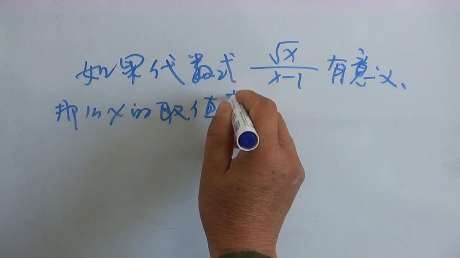 如果代数式 √x/(x-1) 有意义、
那么x的取值